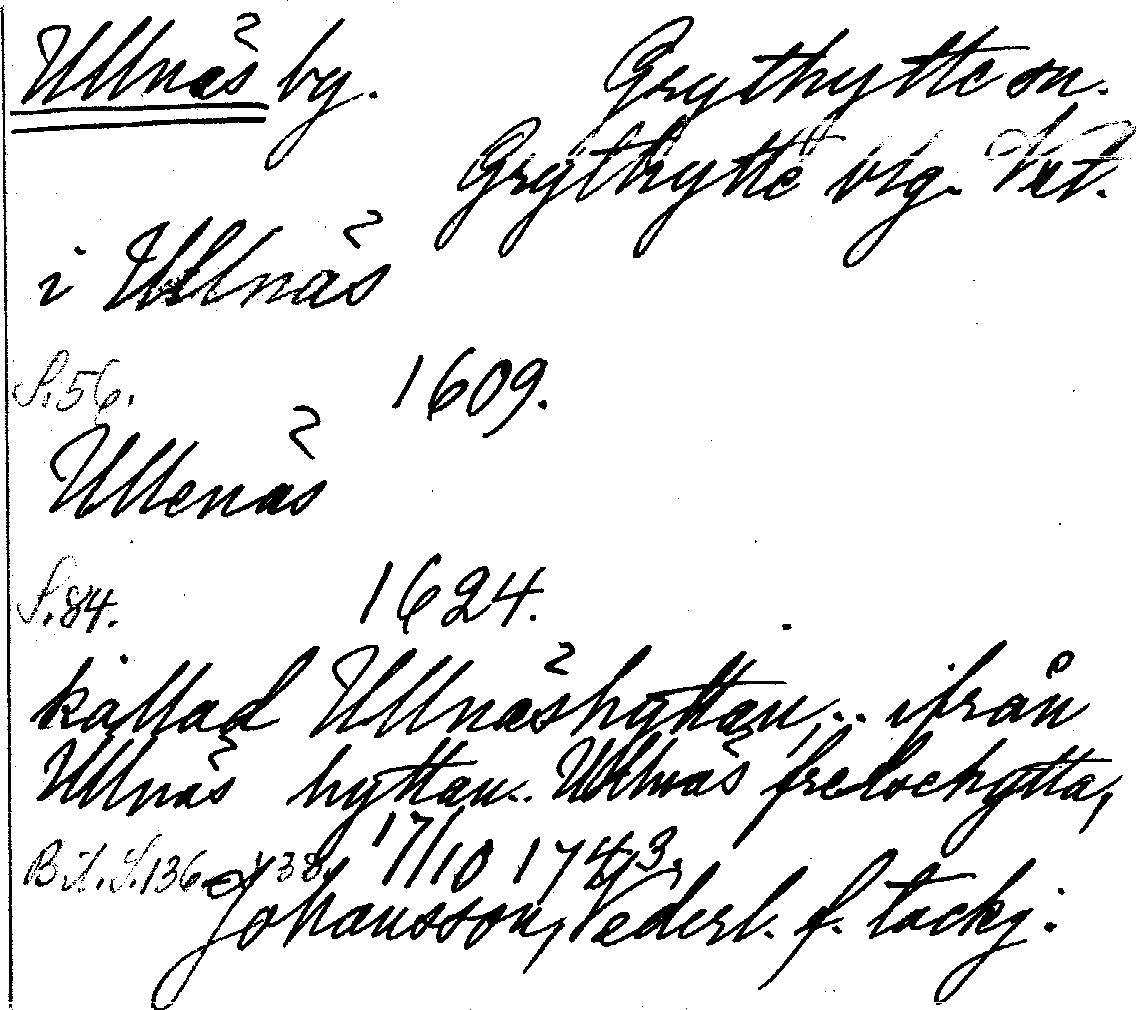 Ullnäs by. Grythytte sn.
Grythytte blg. Vstm.
i Ullnäs
S.56. 1609.
Ullenäs
S.84. 1624.
kallad Ullnäshyttan,.. ifrån
Ullnäs hyttan.. Ullnäs frelsehytta,
Bil. S.136 o. 138. 17/10 1743.
Johansson, Vederl. f. tackj.